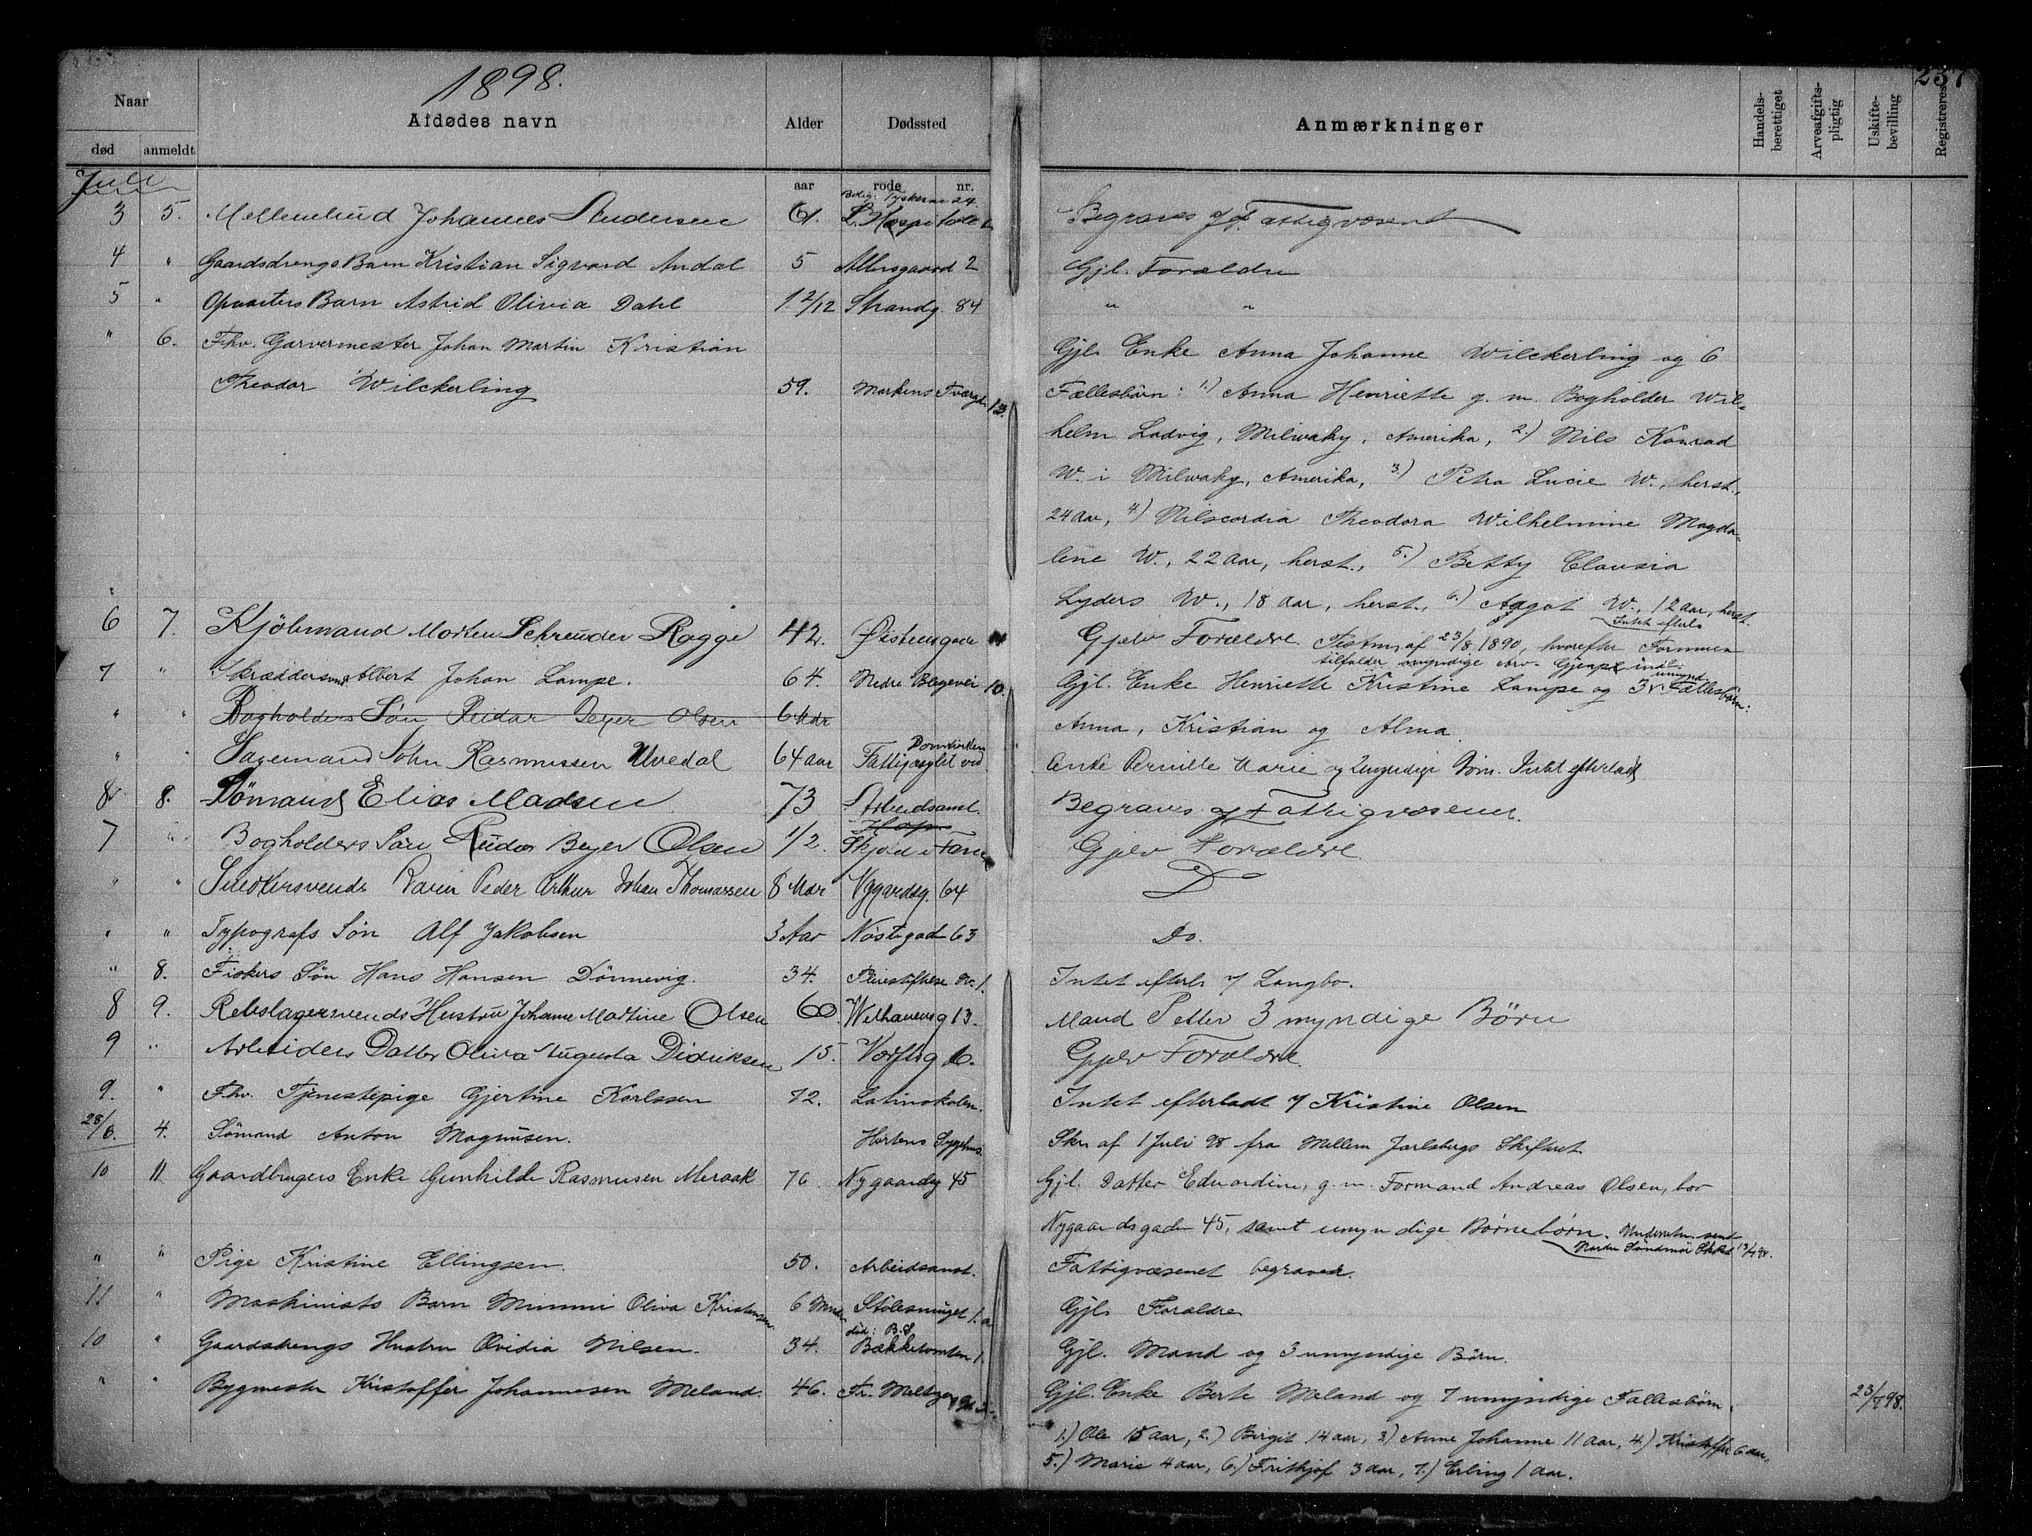 1898.
237
Naar
død
anmeldt
Afdødes navn
Alder
aar
Dødssted
rode
nr.
Anmærkninger
Handels-berettiget
Arveafgifts-pligtig
Uskifte-bevilling
Registreres
Juli
3 5. Johannes Andersen 61. L. Hospital Begraves af Fattigvæsenet
4 " Gaardsdrengs Barn Kristian Sigvard Andal 5 2 Gjl. Forældre
5 " Opvarters Barn Astrid Olivia Dahl 1 2/12 Strandg 84 " "
" 6. Fhv. Garvermester Johan Martin Kristian Gjl. Enke Anna Johanne Wilckerling og 6
Theodor Wilckerling 59. Markens Tværgd. 13. Fællesbørn: 1.) Anna Henriette g. m. Bogholder Wil-
helm Ludvig, Milwaky, Amerika, 2.) Nils Konrad
W. i Milwaky, Amerika, 3.) Petra Lucie W., herst.,
24 aar, 4.) Nilscordia Theodora Wilhelmine Magda-
lene W., 22 aar, herst., 5.) Betty Clausia
Lyders W., 18 aar, herst., 6.) Aagot W., 12 aar, herst.
Intet efterl.
6 7. Kjöbmand Morten Schreuder Rogge 42. Øisteinsgade Gjelv Forældre. Testm. af 23/8 1890, hvorefter Formuen
tilfalder
7 " Skræddersvend Albert Johan Lampe. 64. Nedre Blegevei 10. Gjl. Enke Henriette Kristine Lampe og 3 umynd. Fællesbörn:
" " Bogholders Sön Reidar Beyer Olsen 6 Mdr Anna, Kristian og Alma.
" " John Rasmussen Ulvedal 64 aar ved Domkirken Enke Pernille Marie og 2 umyndige Børn. Intet efterladt
8 8. Sømand Elias Madsen 73 Arbeidsanst. Begraves af Fattigvæsenet.
7 " Bogholders Søn Reidar Beyer Olsen 1/2. Hop Skjold i Fane Gjelv Forældre.
" " Peder Arthur Johan Thomassen 8 Mdr Nygaardsg. 64 D
" " Typografs Søn Alf Jakobsen 3 Aar Nöstegaden 63 Do.
" 8. Fiskers Søn Hans Hansen Dönnevig. 34. Pleiestiftelse Nr. 1. Intet efterl. Langbo.
8 9. Rebslagersvends Hustru Johanne Martine Olsen 60. Welhavensg 13. Mand Petter 3 myndige Børn
9 " Arbeiders Datter Oliva Augusta Didriksen 15. Værftsg 6. Gjelv Forældre.
9. " Fhv. Tjenestepige Gjertine Karlssen 72. Latinskolen. Intet efterladt Kristine Olsen
28/6. 4. Sömand Anton Magnusen. Hortens Sygehus. Skr. af 1 Juli 98 fra Mellem Jarlsbergs Skifteret
10 11 Gaardbrugers Enke Gunhilde Rasmusen Meraak 76. Nygaardsg 45 Gjl. Datter Edvardine, g. m. Formand Andreas Olsen, bor
Nygaardsgaden 45, samt umyndige Børnebörn.
" " Pige Kristine Ellingsen. 50. Arbeidsanst. Fattigvæsenet begraver.
11 " Maskinists Barn Mimmi Oliva Kristensen 6 Mndr. Stölesmuget 1. a Gjl. Forældre
10 " Gaardsdrengs Hustru Ovidia Nilsen. 34. Bækketomten 1. Gjl. Mand og 3 umyndige Börn.
" " Bygmester Kristoffer Johannesen Meland. 46. Fr. Meltzersg Gjl. Enke Berte Meland og 7 umyndige Fællesbörn. 23/7 98.
1.) Ole 15 aar, 2.) Birgit 14 aar, 3.) Anne Johanne 11 aar, 4.) Kristoffer 6 aar,
5.) Marie 4 aar, 6.) Frithjof 3 aar, 7.) Erling 1 aar.